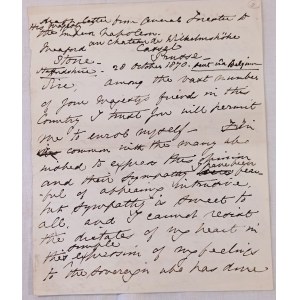 letter from General Forester to
His Majesty
the Emperor Napoleon
Meaford au Chateau de Wilhelmshöhe
Cassel
Stone Prusse
Staffordshire - 28 October 1870.
Sire, among the vast number
of your Majesty's friend in this
Country I that you will permit
me to enrol myself - I in
common with the many who
wished to express the opinion
and their Sympathy I have been
ful of appearing intrusive,
but Sympathy is sweet to
all, and I cannot resist
the dictates of my heart in
this simple expression of my feelings
to the Sovereign who has done